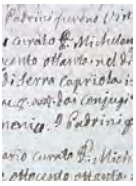 Padrini furono Vin
curato Michelan
cento ottanta, nel d
di Serra Capriola i
dai conjugi
menico. I Padrini f
ario curato Mich
e ottocento ottanta